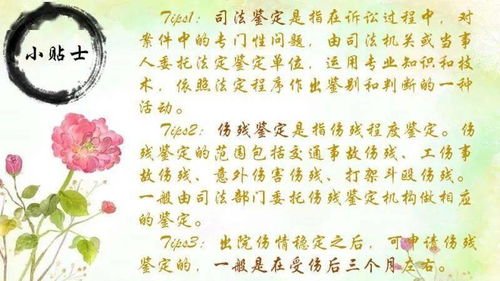 小贴士
Tips1：司法鉴定是指在诉讼过程中，对
案件中的专门性问题，由司法机关或当事
人委托法定鉴定单位，运用专业知识和技
术，依照法定程序作出鉴别和判断的一种
活动。
Tips2：伤残鉴定是指伤残程度鉴定。伤
残鉴定的范围包括交通事故伤残、工伤事
故伤残、意外伤害伤残、打架斗殴伤残。
一般由司法部门委托伤残鉴定机构做相应
的鉴定。
Tips3：出院伤情稳定之后，可申请伤残
鉴定的，一般是在受伤后三个月左右。